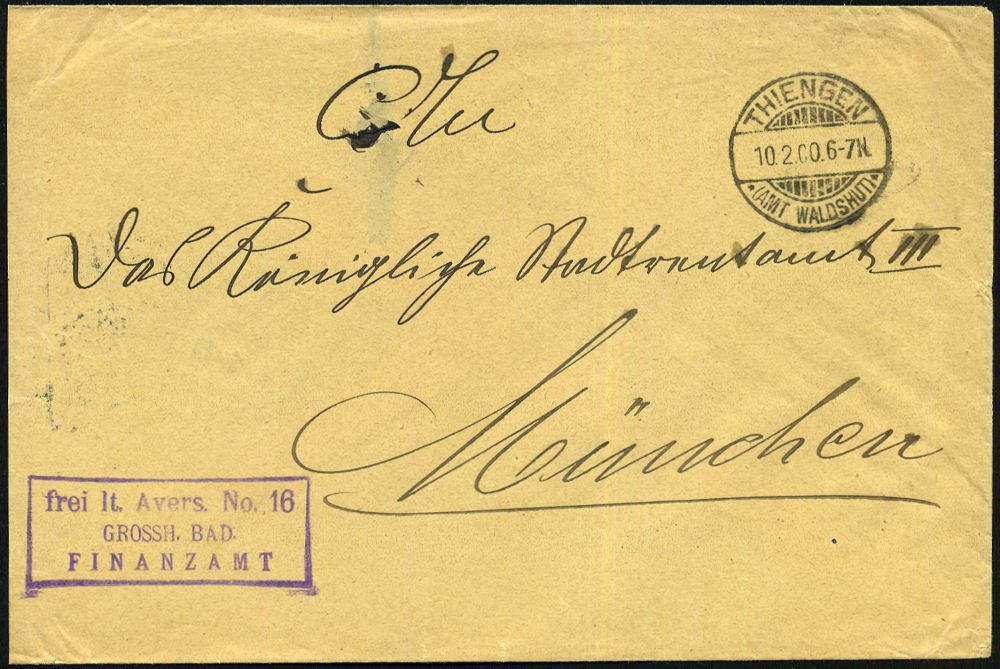 An
THIENGEN
10.2.00.6-7N.
(AMT WALDSHUT)
Das Königliche Stadtrentamt III
München
frei lt. Avers. No. 16
GROSSH. BAD.
FINANZAMT